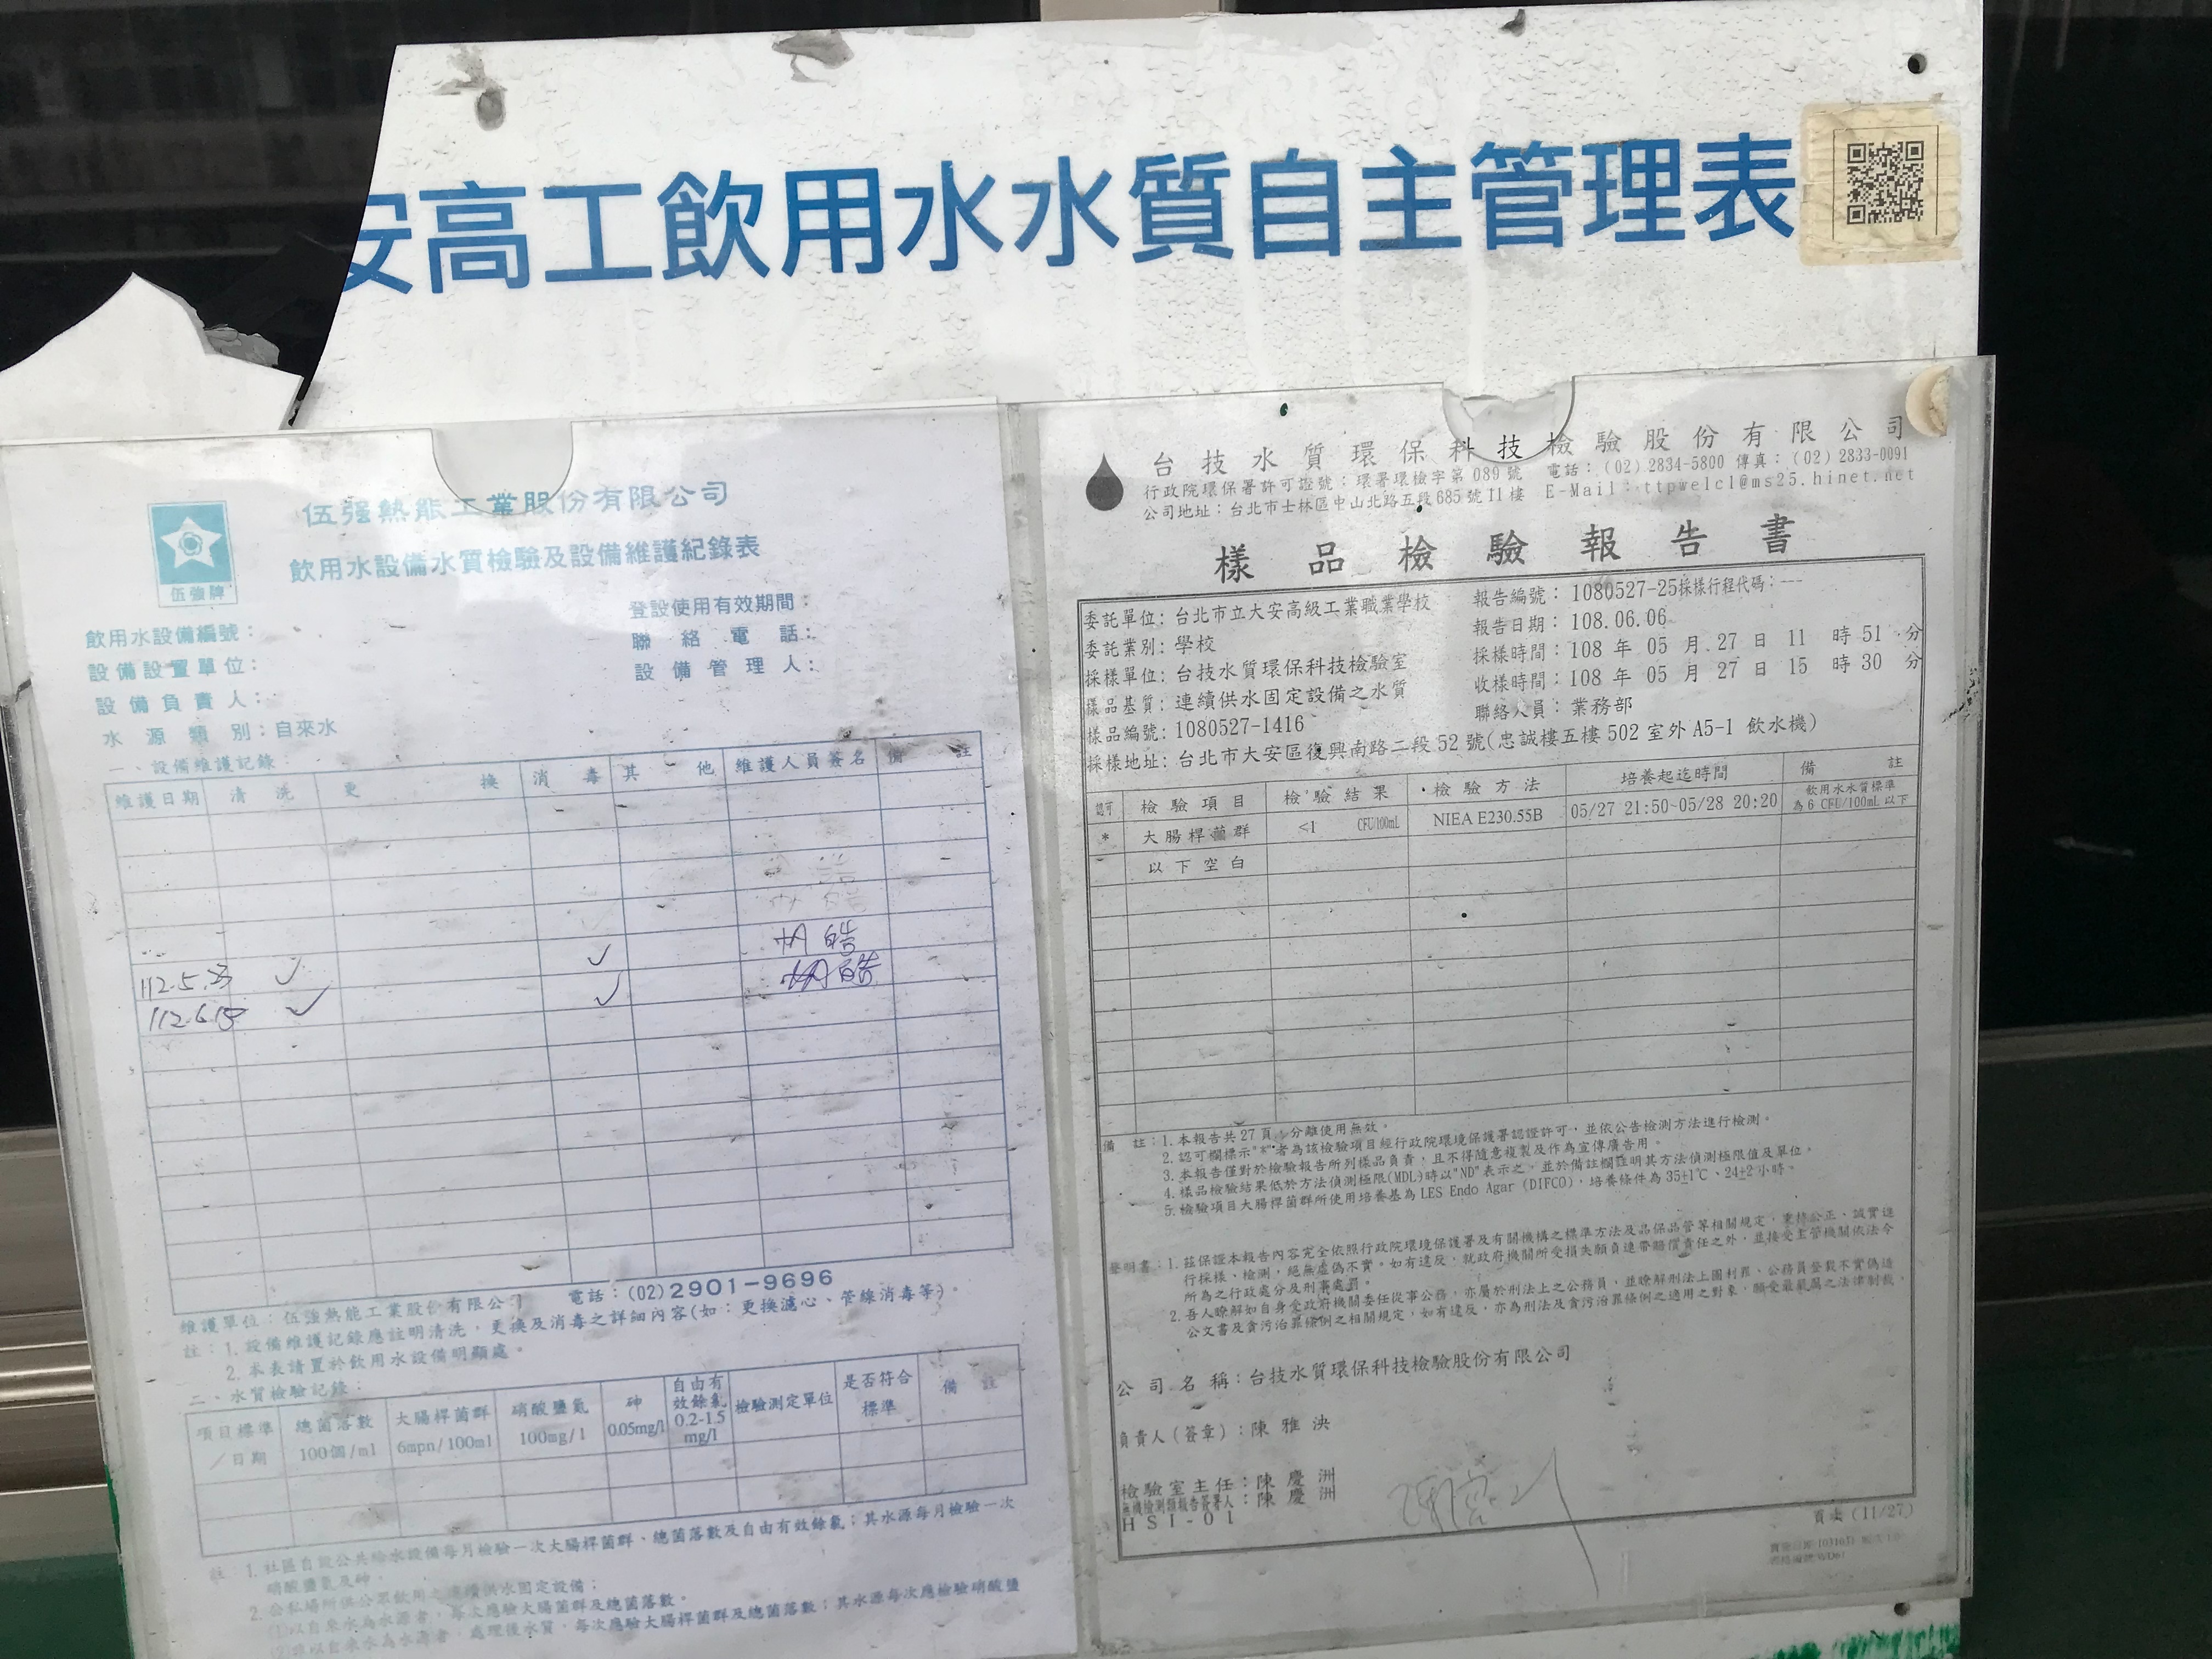 安高工飲用水水質自主管理表
伍强熱能工業股份有限公司
飲用水設備水質檢驗及設備維護紀錄表
伍強牌
登設使用有效期間：
飲用水設備編號：
聯絡電話：
設備設置單位：
設備管理人：
設備負責人：
水源類別：自來水
一、設備維護記錄：
維護日期 清洗 更換 消毒 其他 維護人員簽名 備註
112.5.23 ✓ ✓
112.6.15 ✓ ✓
維護單位：伍強熱能工業股份有限公司 電話：(02)2901-9696
註：1. 設備維護記錄應註明清洗，更換及消毒之詳細內容(如：更換濾心、管線消毒等)。
2. 本表請置於飲用水設備明顯處。
二、水質檢驗記錄：
項目標準／日期 總菌落數 100個/ml 大腸桿菌群 6mpn/100ml 硝酸鹽氮 100mg/l 砷 0.05mg/l 自由有效餘氯 0.2-1.5 mg/l 檢驗測定單位 是否符合標準 備註
註：1. 社區自設公共給水設備每月檢驗一次大腸桿菌群、總菌落數及自由有效餘氯；其水源每月檢驗一次
硝酸鹽氮及砷。
2. 公私場所供公眾飲用之連續供水固定設備：
(1)以自來水為水源者，每次應檢驗大腸桿菌群及總菌落數。
(2)非以自來水為水源者，處理後水質，每次應檢驗大腸桿菌群及總菌落數；其水源每次應檢驗硝酸鹽
台技水質環保科技檢驗股份有限公司
行政院環保署許可證號：環署環檢字第 089 號 電話：(02) 2834-5800 傳真：(02) 2833-0091
公司地址：台北市士林區中山北路五段 685 號 11 樓 E-Mail：ttpwelcl@ms25.hinet.net
樣品檢驗報告書
委託單位：台北市立大安高級工業職業學校 報告編號：1080527-25採樣行程代碼：---
委託業別：學校 報告日期：108.06.06
採樣單位：台技水質環保科技檢驗室 採樣時間：108 年 05 月 27 日 11 時 51 分
樣品基質：連續供水固定設備之水質 收樣時間：108 年 05 月 27 日 15 時 30 分
樣品編號：1080527-1416 聯絡人員：業務部
採樣地址：台北市大安區復興南路二段 52 號(忠誠樓五樓 502 室外 A5-1 飲水機)
認可 檢驗項目 檢驗結果 檢驗方法 培養起迄時間 備註
* 大腸桿菌群 <1 CFU/100mL NIEA E230.55B 05/27 21:50~05/28 20:20 飲用水水質標準為 6 CFU/100mL 以下
以下空白
備註：1. 本報告共 27 頁，分離使用無效。
2. 認可欄標示"*"者為該檢驗項目經行政院環境保護署認證許可，並依公告檢測方法進行檢測。
3. 本報告僅對於檢驗報告所列樣品負責，且不得隨意複製及作為宣傳廣告用。
4. 樣品檢驗結果低於方法偵測極限(MDL)時以"ND"表示之，並於備註欄註明其方法偵測極限值及單位。
5. 檢驗項目大腸桿菌群所使用培養基為 LES Endo Agar (DIFCO)，培養條件為 35±1℃、24±2 小時。
聲明書：1. 茲保證本報告內容完全依照行政院環境保護署及有關機構之標準方法及品保品管等相關規定，秉持公正、誠實進
行採樣、檢測，絕無虛偽不實，如有違反，就政府機關所受損失願負連帶賠償責任之外，並接受主管機關依法令
所為之行政處分及刑事處罰。
2. 吾人瞭解如自身受政府機關委任從事公務，亦屬於刑法上之公務員，並瞭解刑法上圖利罪、公務員登載不實偽造
公文書及貪污治罪條例之相關規定，如有違反，亦為刑法及貪污治罪條例之適用之對象，願受最嚴厲之法律制裁。
公司名稱：台技水質環保科技檢驗股份有限公司
負責人(簽章)：陳雅泱
檢驗室主任：陳慶洲
無機檢測類報告簽署人：陳慶洲
HSI-01
頁次 (11/27)